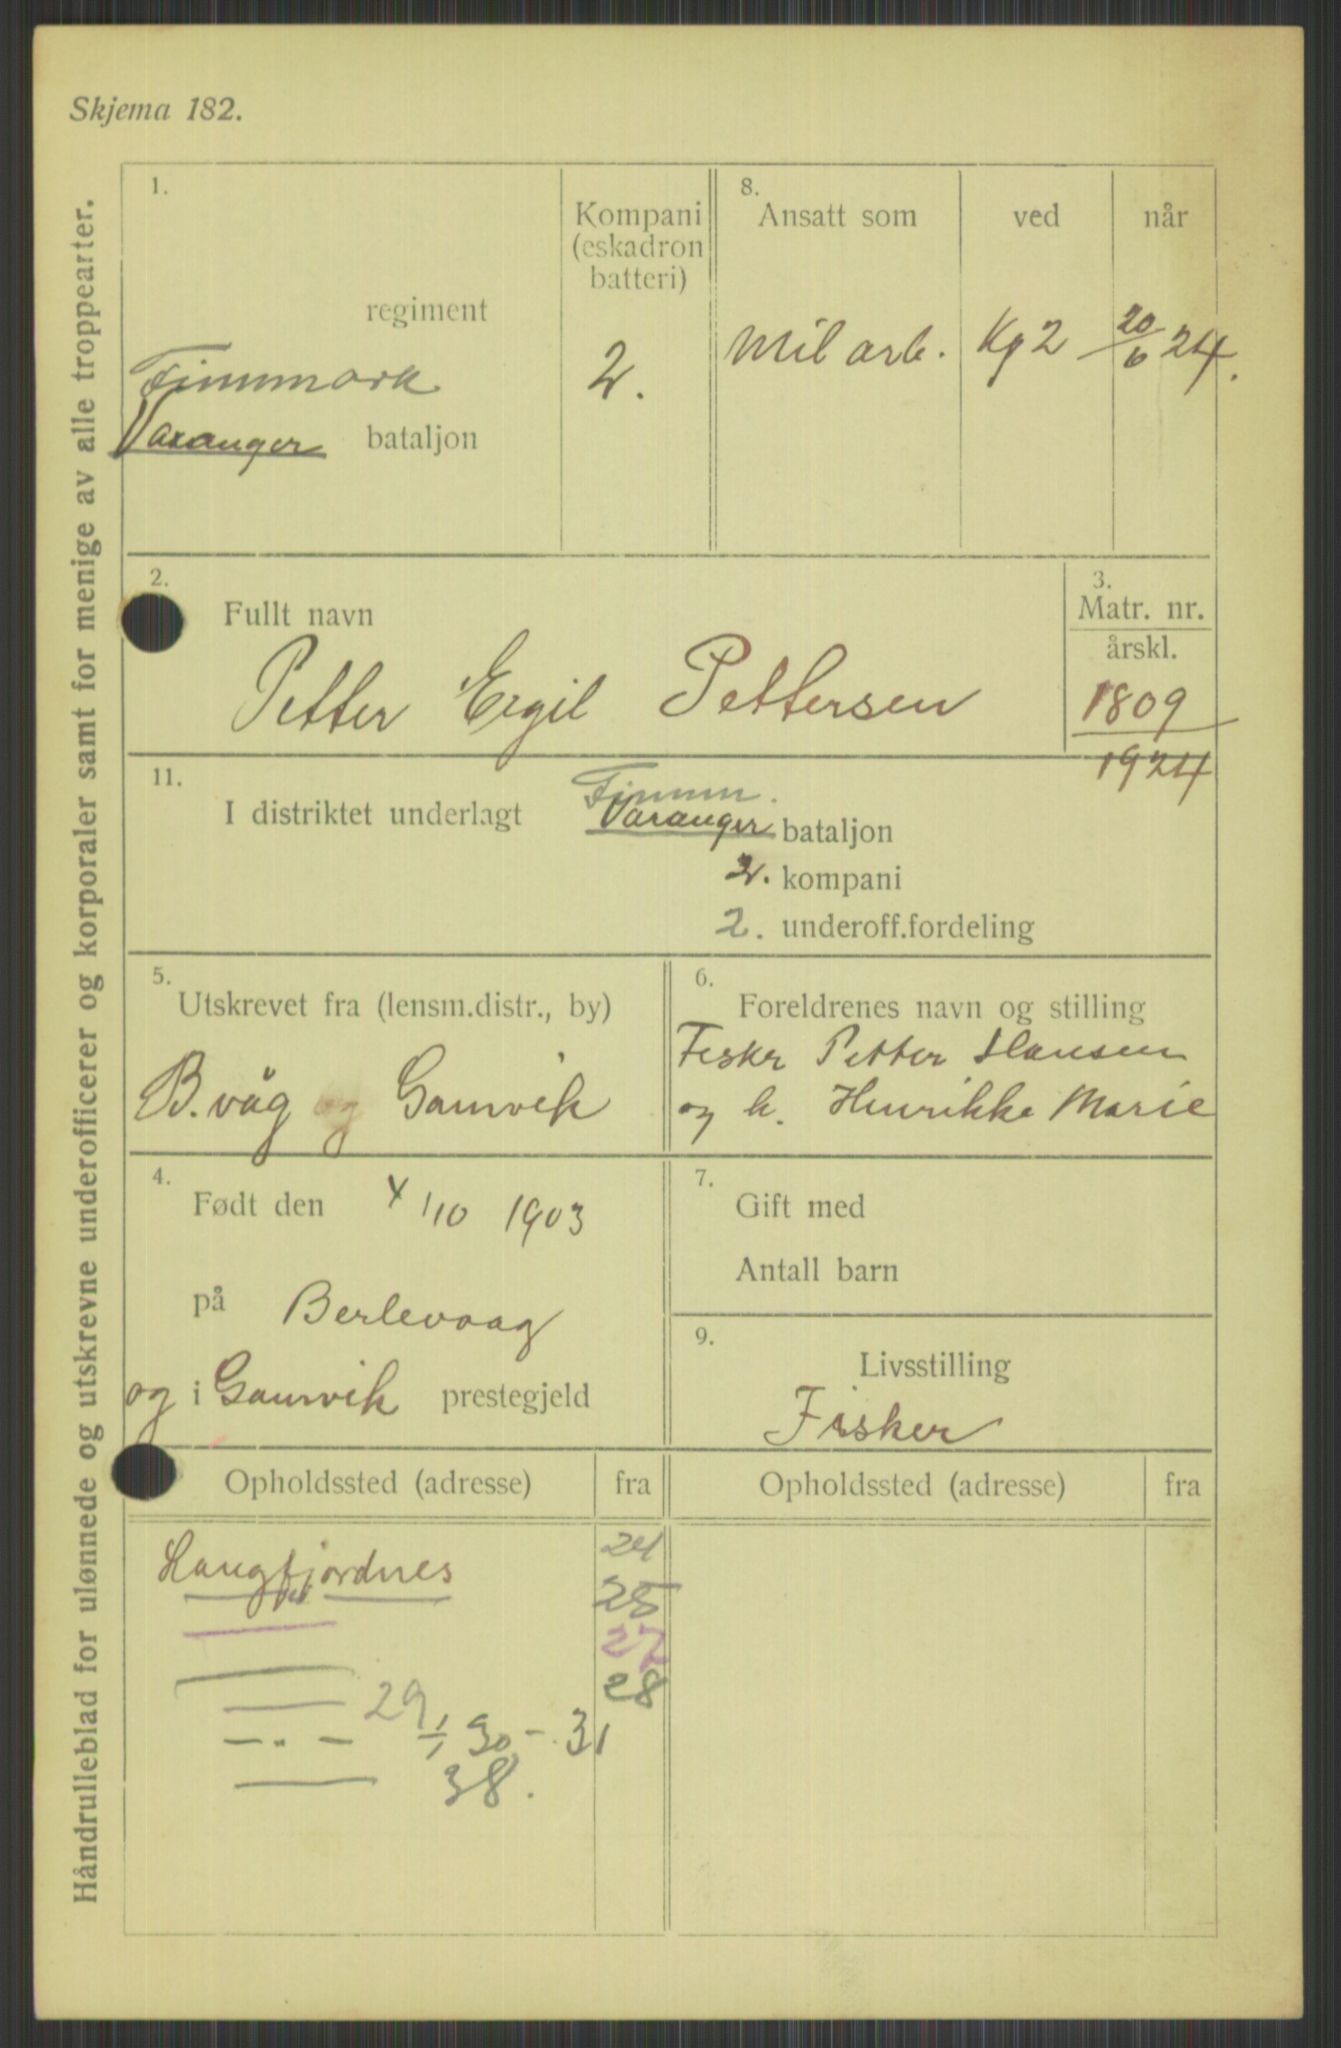 Skjema 182.
Håndrulleblad for ulønnede og utskrevne underofficerer og korporaler samt for menige av alle troppearter.
1.
regiment
Finnmark
Varanger bataljon
Kompani
(eskadron
batteri)
2.
8.
Ansatt som
Mil arb.
ved
Kg 2
når
20/6 24.
2.
Fullt navn
Petter Egil Pettersen
3.
Matr. nr.
årskl.
1809
1924
11.
Finnm.
I distriktet underlagt Varanger bataljon
2. kompani
2. underoff.fordeling
5.
Utskrevet fra (lensm.distr., by)
B.våg og Gamvik
6.
Foreldrenes navn og stilling
Fisker Petter Hansen
og h. Henrikke Marie
4.
Født den 4/10 1903
på Berlevaag
og i Gamvik prestegjeld
7.
Gift med
Antall barn
9.
Livsstilling
Fisker
Opholdssted (adresse) fra
Langfjordnes 24
25
27
28
29
1/1 30 - 31
38.
Opholdssted (adresse) fra